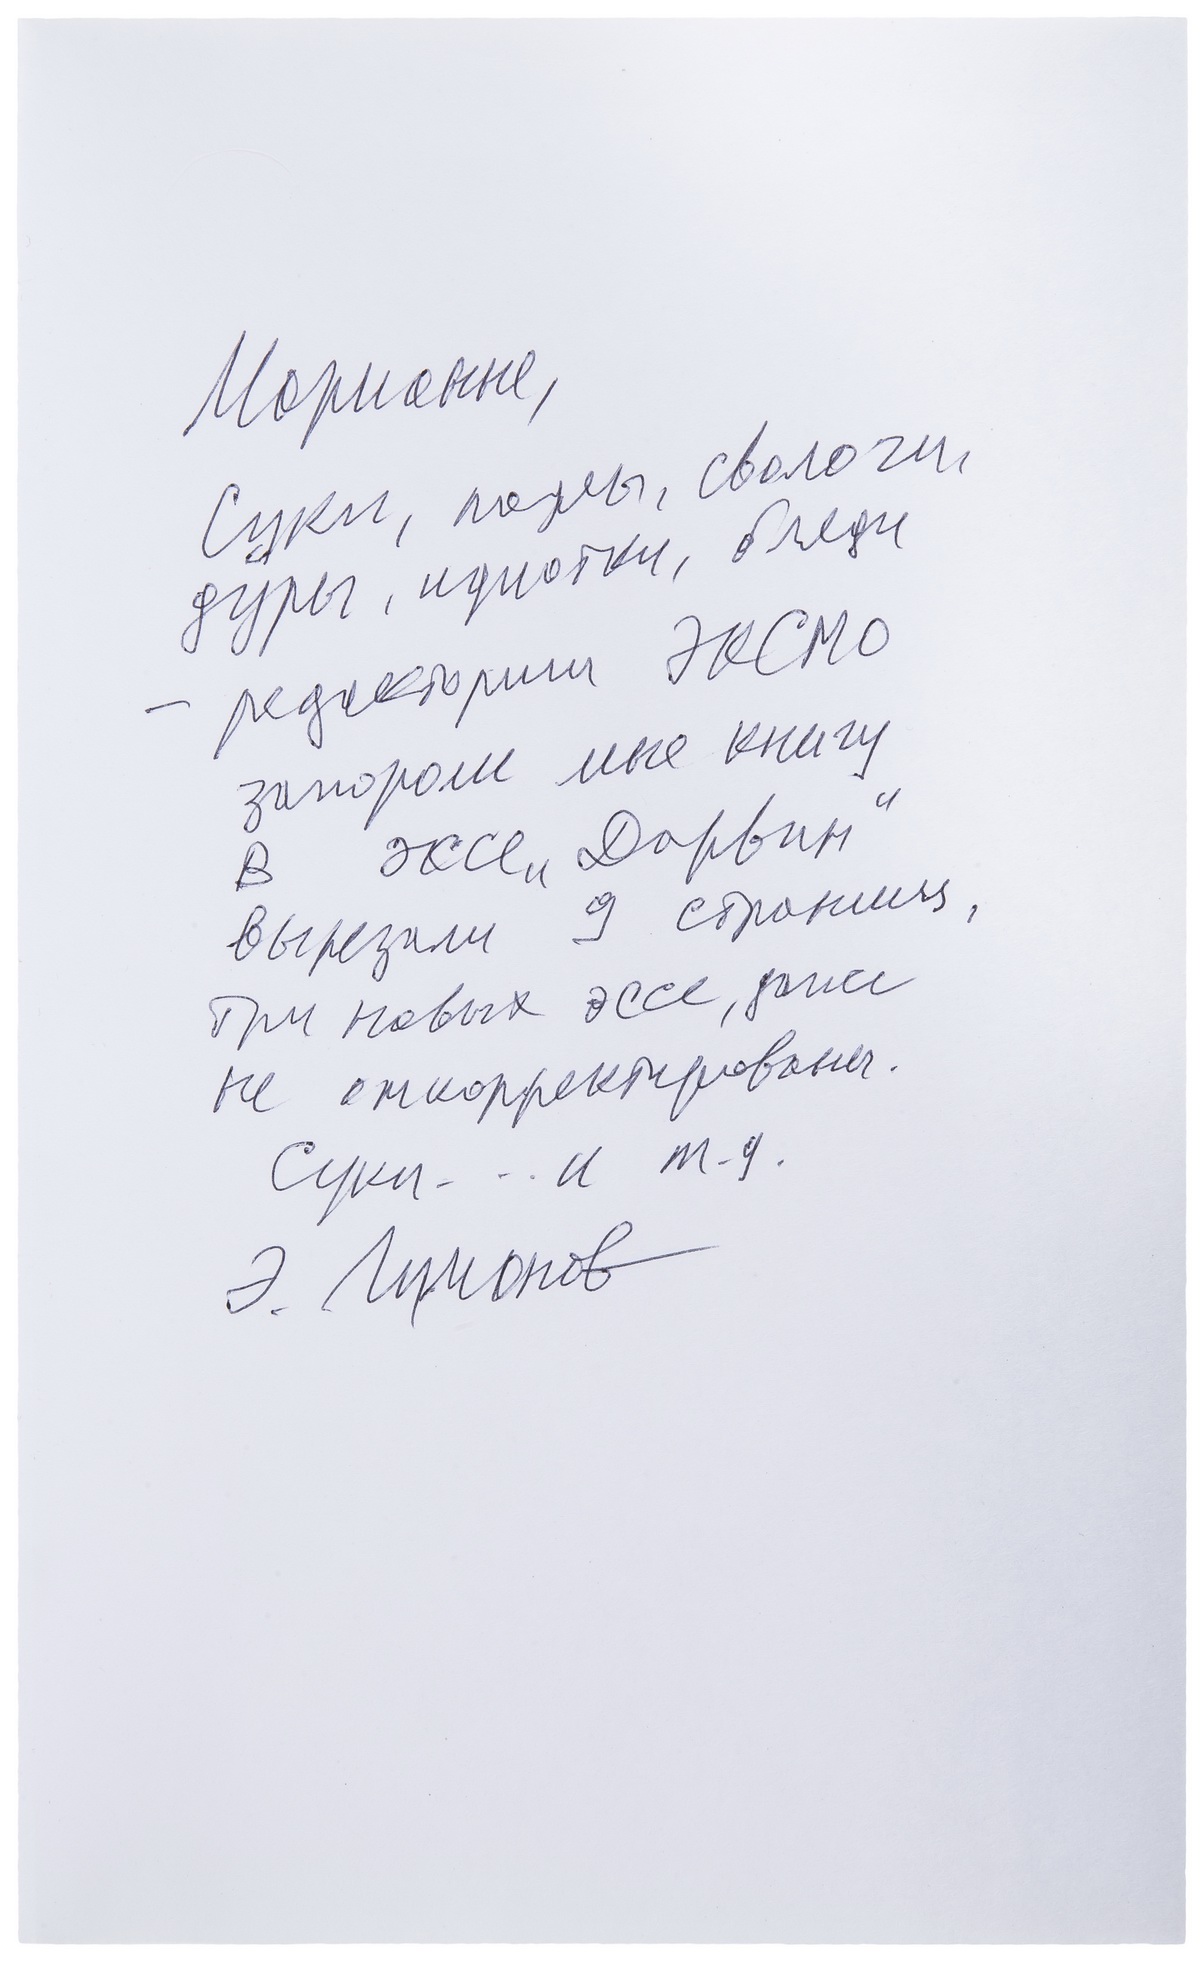 Марианне,
Суки, падлы, сволочи,
дуры, идиотки, бляди
– редакторши ЭКСМО
запороли мне книгу
в эссе „Дарвин“
вырезали 9 страниц,
три новых эссе, даже
не откорректированы.
Суки - - . . и т-д.
Э. Лимонов